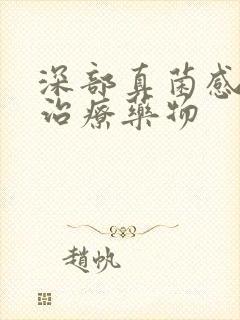 深部真菌感
治療藥物
趙帆